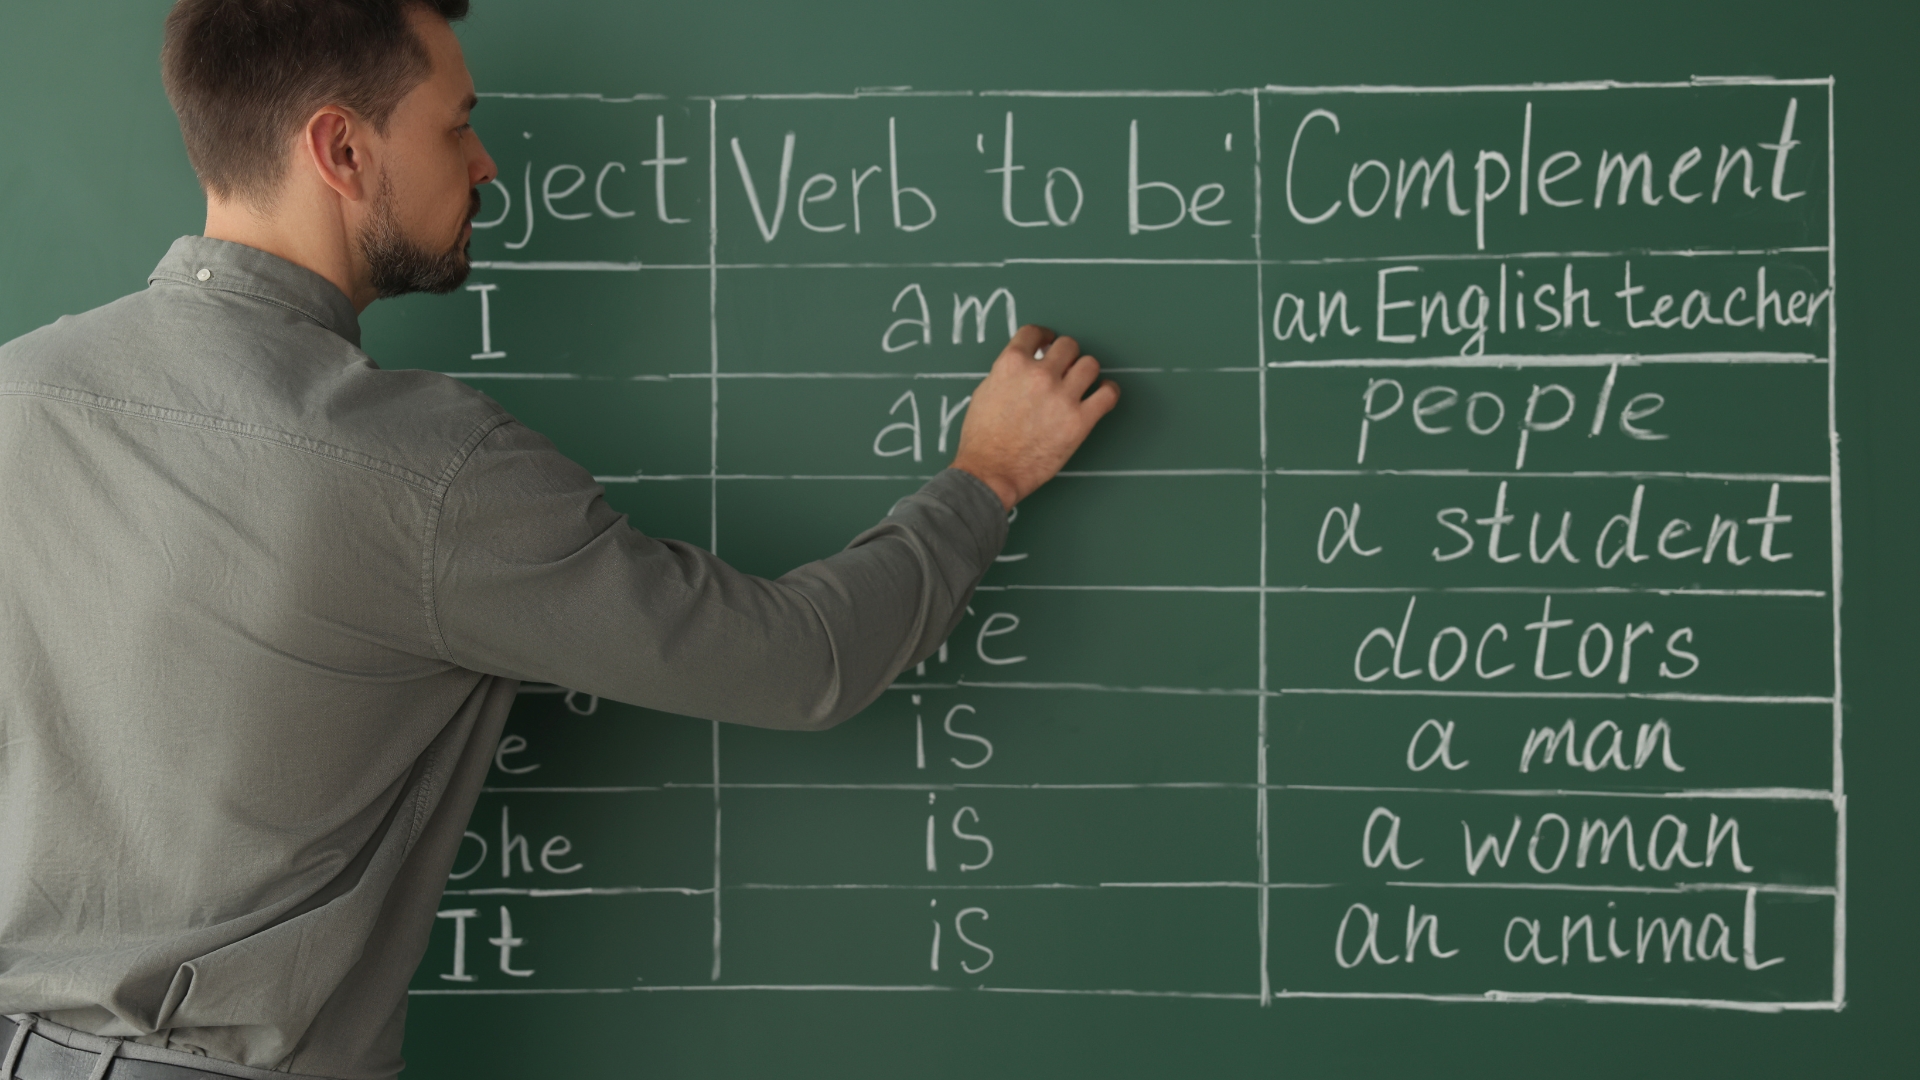 Verb 'to be' Complement
I am an English teacher
people
a student
doctors
is a man
is a woman
It is an animal